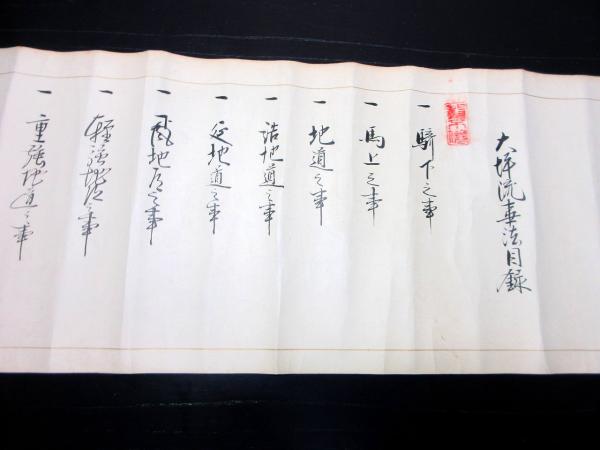 大坪流壱法目録
一 騎下之事
一 馬上之事
一 地道之事
一 詰地道之事
一 延地道之事
一 地道之事
一 軽強地道之事
一 重強地道之事